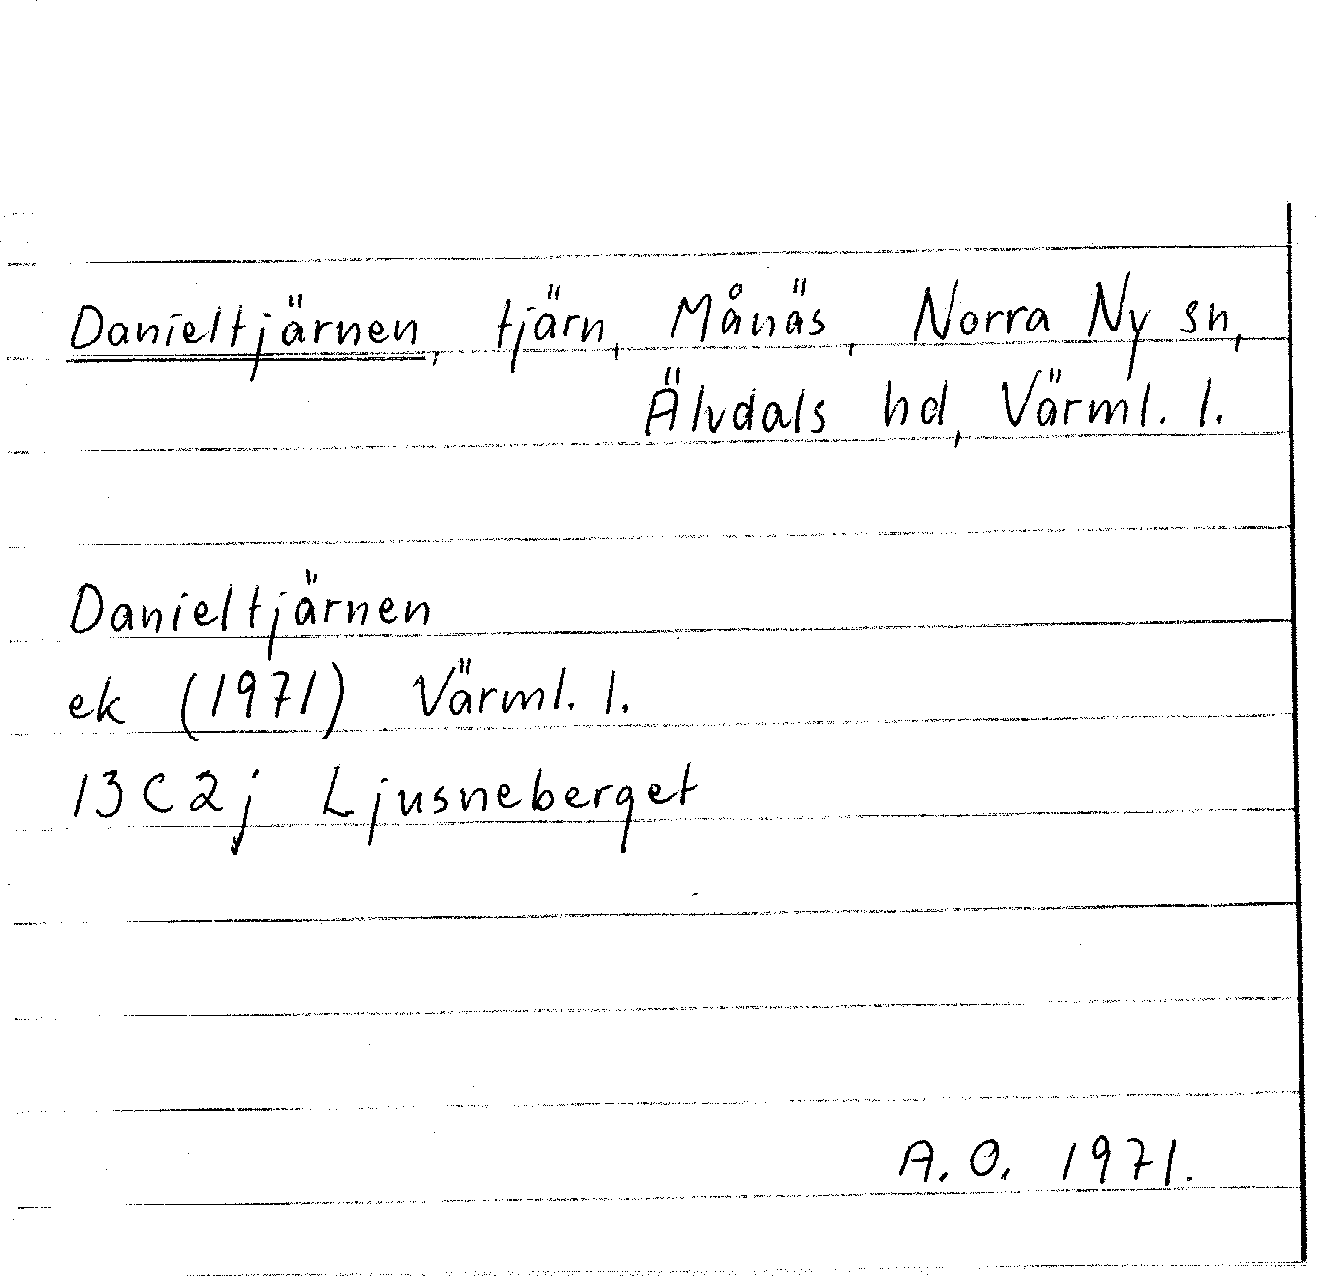 Danieltjärnen, tjärn, Månäs, Norra Ny sn,
Älvdals hd, Värml. l.
Danieltjärnen
ek (1971) Värml. l.
13C2j Ljusneberget
A.O. 1971.